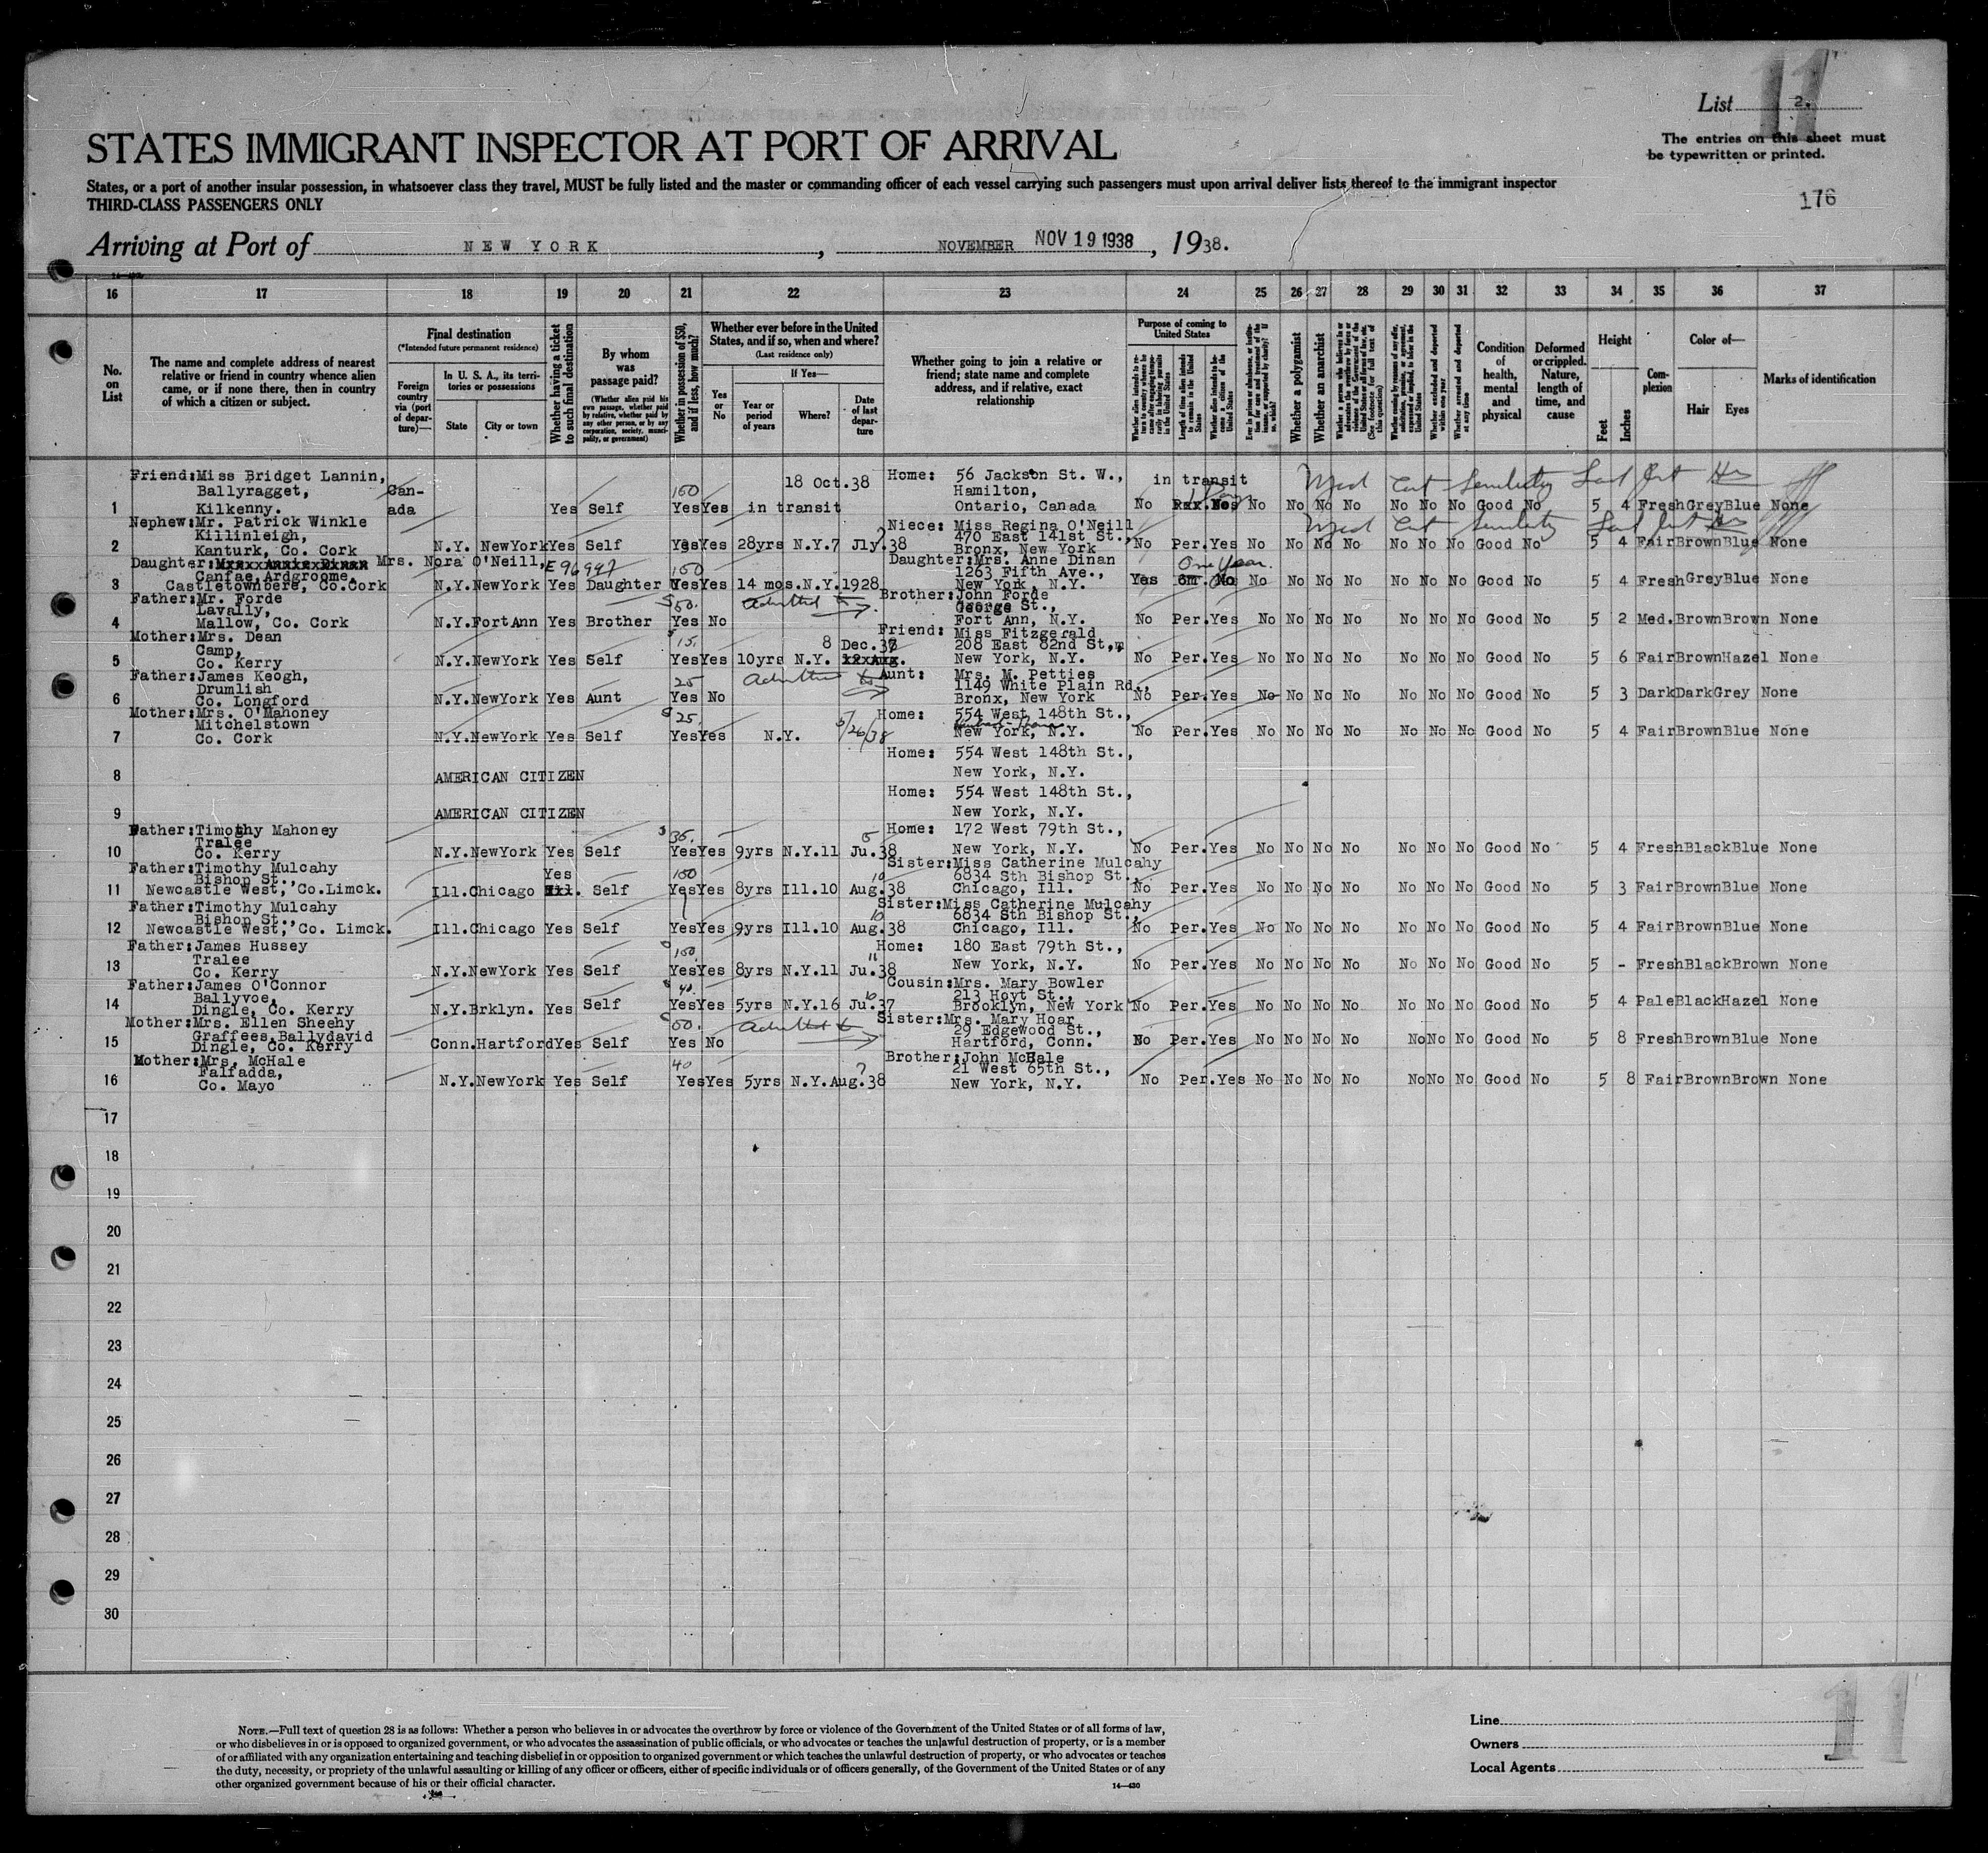 11
List 2.
The entries on this sheet must
be typewritten or printed.
STATES IMMIGRANT INSPECTOR AT PORT OF ARRIVAL
States, or a port of another insular possession, in whatsoever class they travel, MUST be fully listed and the master or commanding officer of each vessel carrying such passengers must upon arrival deliver lists thereof to the immigrant inspector
THIRD-CLASS PASSENGERS ONLY
176
Arriving at Port of NEW YORK, NOVEMBER NOV 19 1938, 1938.
16 17 18 19 20 21 22 23 24 25 26 27 28 29 30 31 32 33 34 35 36 37
No. on List
The name and complete address of nearest relative or friend in country whence alien came, or if none there, then in country of which a citizen or subject.
Final destination
(*Intended future permanent residence)
Foreign country via (port of departure)—
In U. S. A., its territories or possessions
State
City or town
Whether having a ticket to such final destination
By whom was passage paid?
(Whether alien paid his own passage, whether paid by relative, whether paid by any other person, or by any corporation, society, municipality, or government)
Whether in possession of $50, and if less, how much?
Whether ever before in the United States, and if so, when and where?
(Last residence only)
Yes or No
If Yes—
Year or period of years
Where?
Date of last departure
Whether going to join a relative or friend; state name and complete address, and if relative, exact relationship
Purpose of coming to United States
Whether a polygamist
Whether an anarchist
Condition of health, mental and physical
Deformed or crippled. Nature, length of time, and cause
Height
Feet
Inches
Complexion
Color of—
Hair
Eyes
Marks of identification
Friend: Miss Bridget Lannin, 18 Oct. 38 Home: 56 Jackson St. W., in transit
Ballyragget, Can- 150 Hamilton,
1 Kilkenny. ada Yes Self Yes Yes in transit Ontario, Canada No No No No No No No No Good No 5 4 Fresh Grey Blue None
Nephew: Mr. Patrick Winkle Niece: Miss Regina O'Neill
Killinleigh, 470 East 141st St.,
2 Kanturk, Co. Cork N.Y. New York Yes Self Yes Yes 28yrs N.Y. 7 Jly. 38 Bronx, New York No Per. Yes No No No No No No No Good No 5 4 Fair Brown Blue None
Daughter: Mrs. Nora O'Neill, E96947 Daughter: Mrs. Anne Dinan One Year.
Canfae, Ardgroome, 150 1263 Fifth Ave.,
3 Castletownbere, Co. Cork N.Y. New York Yes Daughter Yes Yes 14 mos. N.Y. 1928 New York, N.Y. Yes 6m. No No No No No No No No Good No 5 4 Fresh Grey Blue None
Father: Mr. Forde $50. Admitted Brother: John Forde
Lavally, George St.,
4 Mallow, Co. Cork N.Y. Fort Ann Yes Brother Yes No Fort Ann, N.Y. No Per. Yes No No No No No No No Good No 5 2 Med. Brown Brown None
Mother: Mrs. Dean Friend: Miss Fitzgerald
Camp, 15. 8 Dec. 37 208 East 82nd St.,
5 Co. Kerry N.Y. New York Yes Self Yes Yes 10yrs N.Y. New York, N.Y. No Per. Yes No No No No No No No Good No 5 6 Fair Brown Hazel None
Father: James Keogh, Admitted Aunt: Mrs. M. Petties
Drumlish 25 1149 White Plain Rd.,
6 Co. Longford N.Y. New York Yes Aunt Yes No Bronx, New York No Per. Yes No No No No No No No Good No 5 3 Dark Dark Grey None
Mother: Mrs. O'Mahoney $25. Home: 554 West 148th St.,
Mitchelstown
7 Co. Cork N.Y. New York Yes Self Yes Yes N.Y. 5/26/38 New York, N.Y. No Per. Yes No No No No No No No Good No 5 4 Fair Brown Blue None
Home: 554 West 148th St.,
8 AMERICAN CITIZEN New York, N.Y.
Home: 554 West 148th St.,
9 AMERICAN CITIZEN New York, N.Y.
Father: Timothy Mahoney $35. Home: 172 West 79th St.,
Tralee
10 Co. Kerry N.Y. New York Yes Self Yes Yes 9yrs N.Y. 11 Ju. 38 New York, N.Y. No Per. Yes No No No No No No No Good No 5 4 Fresh Black Blue None
Father: Timothy Mulcahy Yes 150 Sister: Miss Catherine Mulcahy
Bishop St., 6834 Sth Bishop St.,
11 Newcastle West, Co. Limck. Ill. Chicago Self Yes Yes 8yrs Ill. 10 Aug. 38 Chicago, Ill. No Per. Yes No No No No No No No Good No 5 3 Fair Brown Blue None
Father: Timothy Mulcahy Sister: Miss Catherine Mulcahy
Bishop St., 6834 Sth Bishop St.,
12 Newcastle West, Co. Limck. Ill. Chicago Yes Self Yes Yes 9yrs Ill. 10 Aug. 38 Chicago, Ill. No Per. Yes No No No No No No No Good No 5 4 Fair Brown Blue None
Father: James Hussey 150. Home: 180 East 79th St.,
Tralee
13 Co. Kerry N.Y. New York Yes Self Yes Yes 8yrs N.Y. 11 Ju. 38 New York, N.Y. No Per. Yes No No No No No No No Good No 5 - Fresh Black Brown None
Father: James O'Connor $40. Cousin: Mrs. Mary Bowler
Ballyvoe, 213 Hoyt St.,
14 Dingle, Co. Kerry N.Y. Brklyn. Yes Self Yes Yes 5yrs N.Y. 16 Ju. 37 Brooklyn, New York No Per. Yes No No No No No No No Good No 5 4 Pale Black Hazel None
Mother: Mrs. Ellen Sheehy 50. Admitted Sister: Mrs. Mary Hoar
Graffees, Ballydavid 29 Edgewood St.,
15 Dingle, Co. Kerry Conn. Hartford Yes Self Yes No Hartford, Conn. No Per. Yes No No No No No No No Good No 5 8 Fresh Brown Blue None
Mother: Mrs. McHale 40 Brother: John McHale
Falfadda, 21 West 65th St.,
16 Co. Mayo N.Y. New York Yes Self Yes Yes 5yrs N.Y. Aug. 38 New York, N.Y. No Per. Yes No No No No No No No Good No 5 8 Fair Brown Brown None
17
18
19
20
21
22
23
24
25
26
27
28
29
30
NOTE.—Full text of question 28 is as follows: Whether a person who believes in or advocates the overthrow by force or violence of the Government of the United States or of all forms of law,
or who disbelieves in or is opposed to organized government, or who advocates the assassination of public officials, or who advocates or teaches the unlawful destruction of property, or is a member
of or affiliated with any organization entertaining and teaching disbelief in or opposition to organized government or which teaches the unlawful destruction of property, or who advocates or teaches
the duty, necessity, or propriety of the unlawful assaulting or killing of any officer or officers, either of specific individuals or of officers generally, of the Government of the United States or of any
other organized government because of his or their official character.
14—430
Line
Owners
Local Agents
11